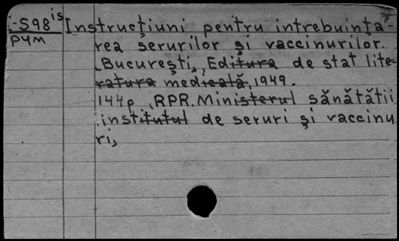 S98 is Instrucţiuni pentru intrebuinţa-
P4M rea serurilor şi vaccinurilor.
Bucureşti, Editura de stat lite-
ratura medicală, 1949.
144p, RPR. Ministerul sănătătii
institutul de seruri şi vaccinu
ri,